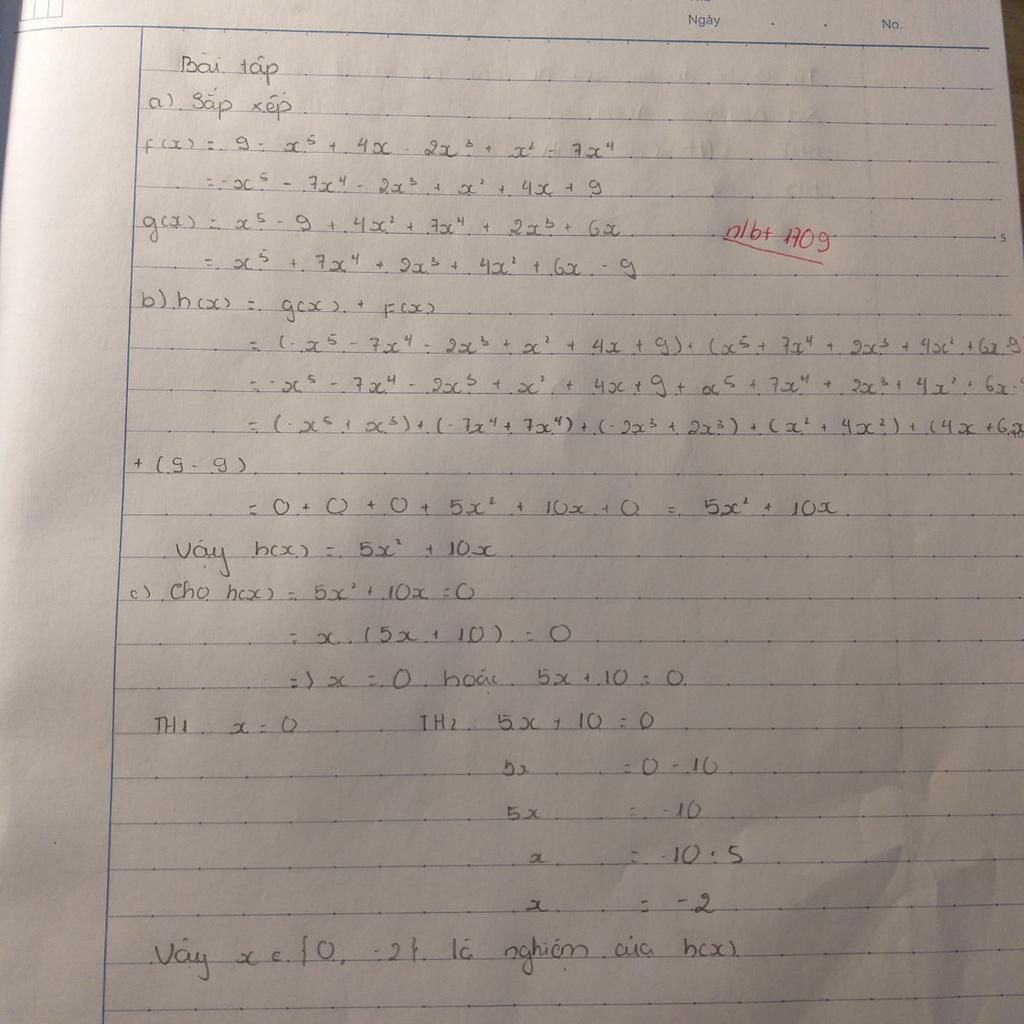 Ngày . . No.
Bài tập
a) Sắp xếp
F(x) = 9 - x⁵ + 4x - 2x³ + x² - 7x⁴
= -x⁵ - 7x⁴ - 2x³ + x² + 4x + 9
g(x) = x⁵ - 9 + 4x² + 7x⁴ + 2x³ + 6x
n1bt1709
5
= x⁵ + 7x⁴ + 2x³ + 4x² + 6x - 9
b) h(x) = g(x) + F(x)
= (-x⁵ - 7x⁴ - 2x³ + x² + 4x + 9) + (x⁵ + 7x⁴ + 2x³ + 4x² + 6x - 9
= -x⁵ - 7x⁴ - 2x³ + x² + 4x + 9 + x⁵ + 7x⁴ + 2x³ + 4x² + 6x -
= (-x⁵ + x⁵) + (-7x⁴ + 7x⁴) + (-2x³ + 2x³) + (x² + 4x²) + (4x + 6x
+ (9 - 9)
= 0 + 0 + 0 + 5x² + 10x + 0 = 5x² + 10x
Vậy h(x) = 5x² + 10x
c) Cho h(x) = 5x² + 10x = 0
= x (5x + 10) = 0
=) x = 0 hoặc 5x + 10 = 0
TH1 x = 0 TH2 5x + 10 = 0
5x = 0 - 10
5x = -10
x = -10 : 5
x = -2
Vậy x ∈ {0, -2} là nghiệm của h(x)